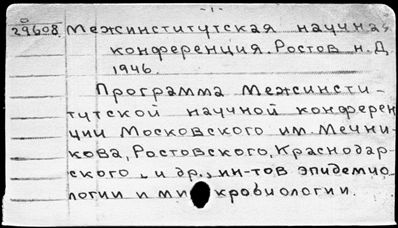 - 1 -
о
29608. Межинститутская научная
конференция. Ростов н.Д
1946.
Программа Межинсти-
тутской научной конферен
ции Московского им. Мечни-
кова, Ростовского, Краснодар-
ского, и др., ин-тов эпидемио
логии и микробиологии.